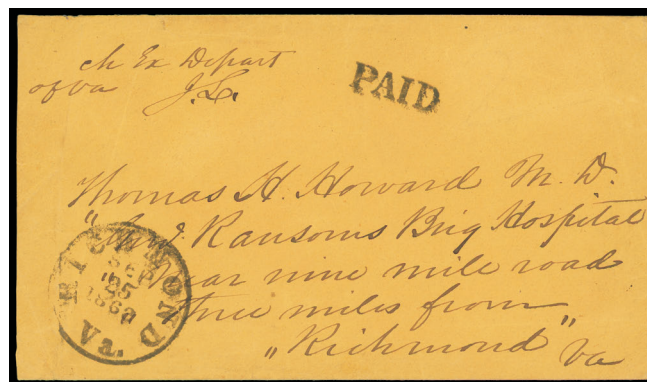 ch Ex Depart
of Va J.L.
PAID
Thomas H. Howard M. D.
Ransoms Brig Hospital
near nine mile road
three miles from
"Richmond" Va
RICHMOND
SEP
25
186
Va.